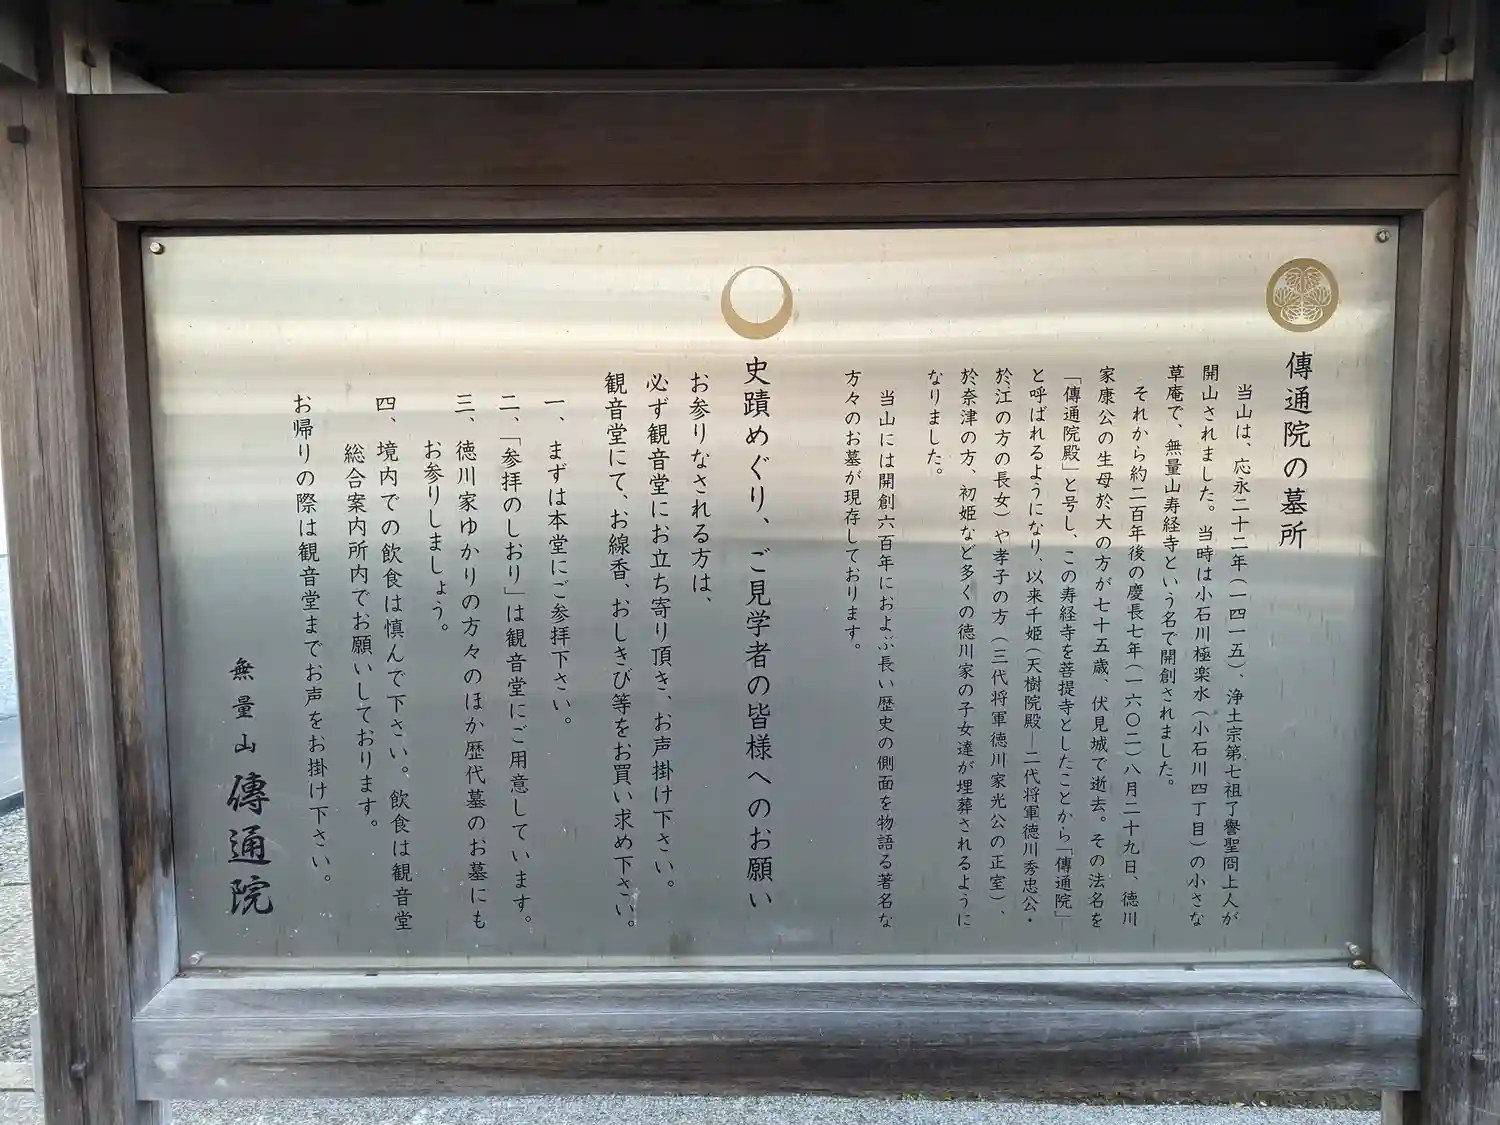 傳通院の墓所
当山は、応永二十二年（一四一五）、浄土宗第七祖了譽聖冏上人が
開山されました。当時は小石川極楽水（小石川四丁目）の小さな
草庵で、無量山寿経寺という名で開創されました。
それから約二百年後の慶長七年（一六〇二）八月二十九日、徳川
家康公の生母於大の方が七十五歳、伏見城で逝去。その法名を
「傳通院殿」と号し、この寿経寺を菩提寺としたことから「傳通院」
と呼ばれるようになり、以来千姫（天樹院殿―二代将軍徳川秀忠公・
於江の方の長女）や孝子の方（三代将軍徳川家光公の正室）、
於奈津の方、初姫など多くの徳川家の子女達が埋葬されるように
なりました。
当山には開創六百年におよぶ長い歴史の側面を物語る著名な
方々のお墓が現存しております。
史蹟めぐり、ご見学者の皆様へのお願い
お参りなされる方は、
必ず観音堂にお立ち寄り頂き、お声掛け下さい。
観音堂にて、お線香、おしきび等をお買い求め下さい。
一、まずは本堂にご参拝下さい。
二、「参拝のしおり」は観音堂にご用意しています。
三、徳川家ゆかりの方々のほか歴代墓のお墓にも
お参りしましょう。
四、境内での飲食は慎んで下さい。飲食は観音堂
総合案内所内でお願いしております。
お帰りの際は観音堂までお声をお掛け下さい。
無量山 傳通院